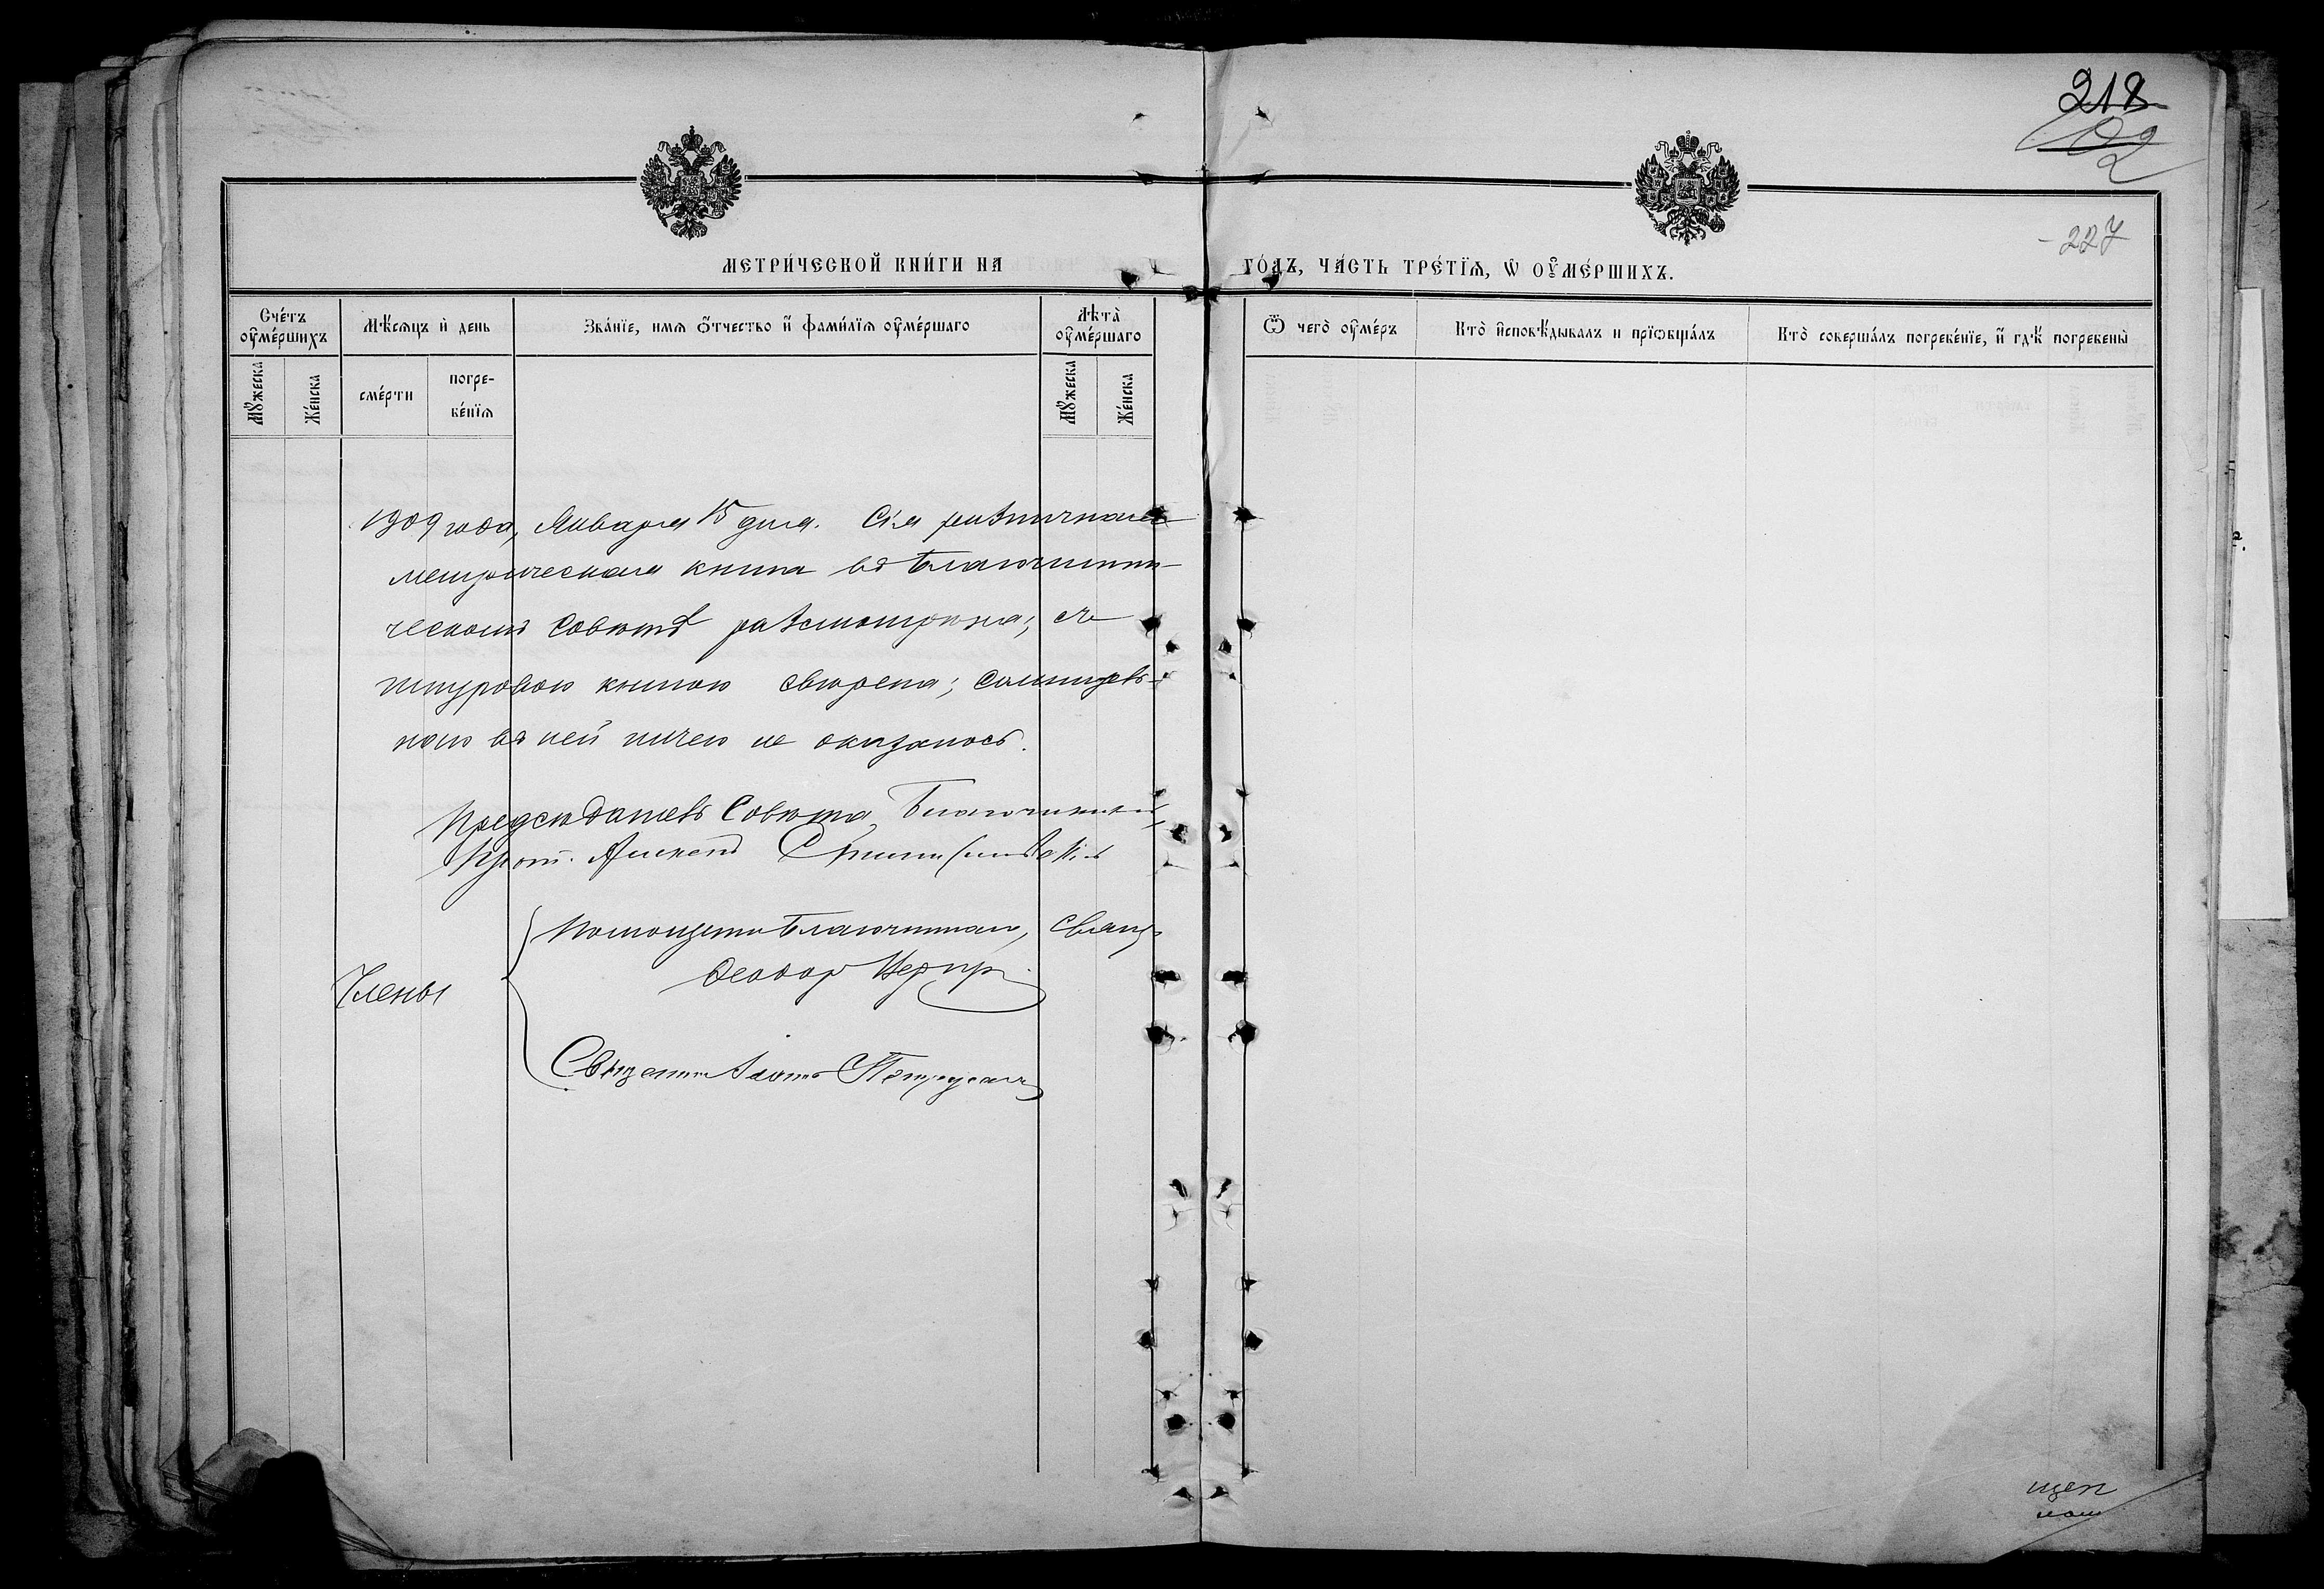 218
227
МЕТРИ́ЧЕСКОЙ КНИ́ГИ НА ГО́ДЪ, ЧА́СТЬ ТРЕ́ТЇѦ, Ѡ ОУ҆МЕ́РШИХЪ.
Сче́тъ оу҆ме́ршихъ
Мѣ́сѧцъ и҆ день
Зва́нїе, имѧ ѻ҆́тчество и҆ фами́лїѧ оу҆ме́ршаго
Лѣта̀ оу҆ме́ршаго
Ѿ чегѡ̀ оу҆ме́ръ
Кто̀ и҆сповѣ́дывалъ и прїѡбща́лъ
Кто̀ соверша́лъ погребе́нїе, и҆ гдѣ́ погребены̀
Мꙋ́жеска
Же́нска
сме́рти
погре-
бе́нїѧ
Мꙋ́жеска
Же́нска
1909 года, Января 15 дня. Сія ризничная
метрическая книга въ благочинни-
ческомъ совѣтѣ разсмотрѣна; съ
шнуровою книгою свѣрена; сомнитель-
наго въ ней ничего не оказалось.
Предсѣдатель Совѣта, Благочинный,
Прот. Алексѣй
Помощникъ благочиннаго, Свящ.
Ѳеодоръ
Члены
Священникъ